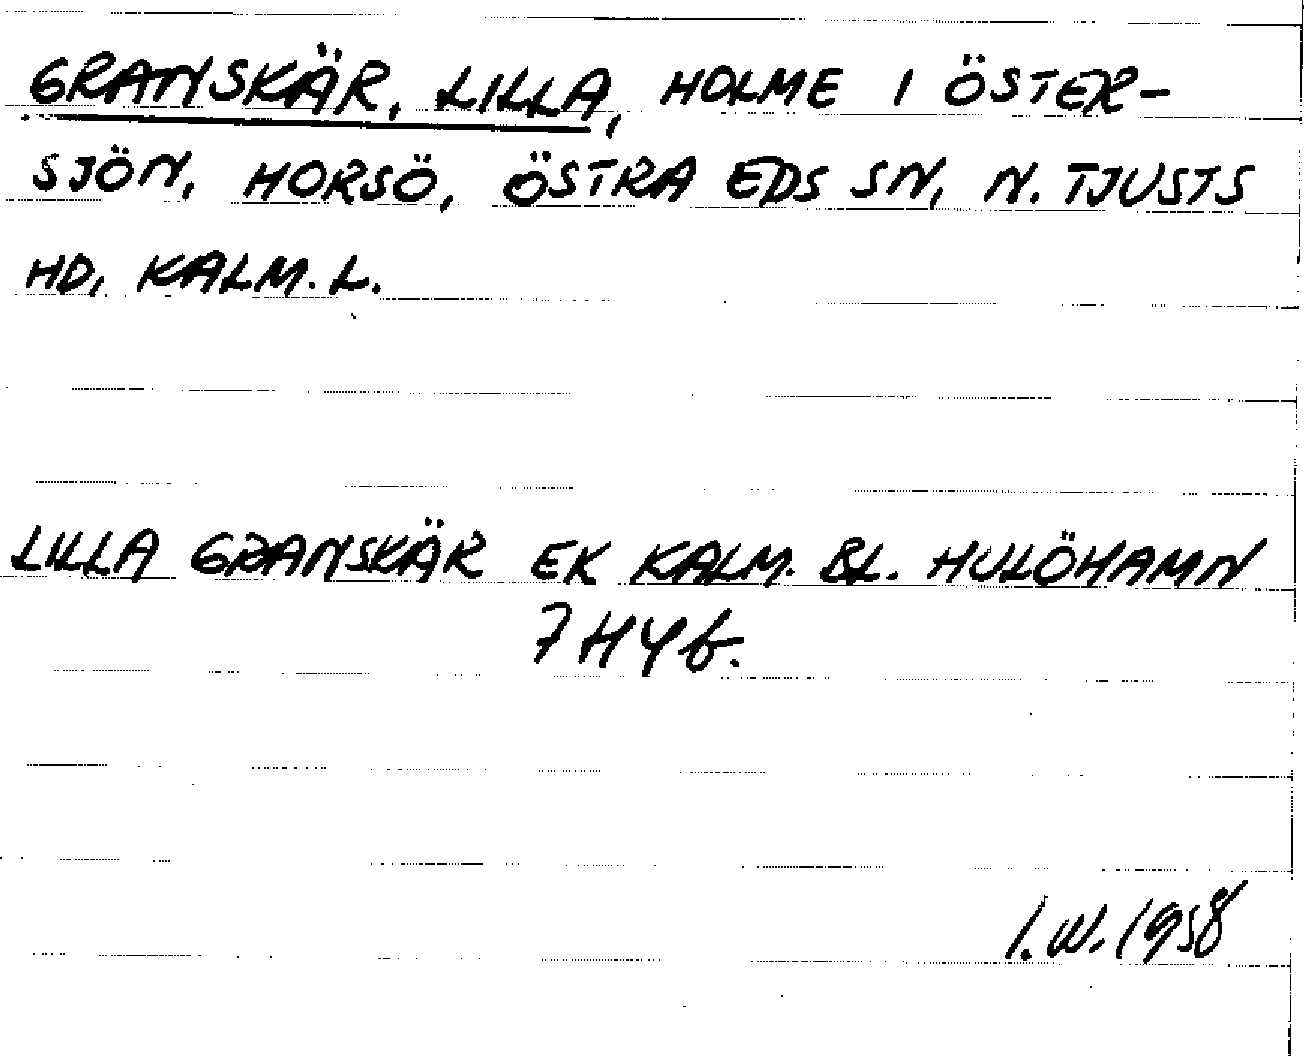 GRANSKÄR, LILLA, HOLME I ÖSTER-
SJÖN, HORSÖ, ÖSTRA EDS SN, N. TJUSTS
HD, KALM. L.
LILLA GRANSKÄR EK KALM. BL. HULÖHAMN
7 H4b.
I.W. 1958